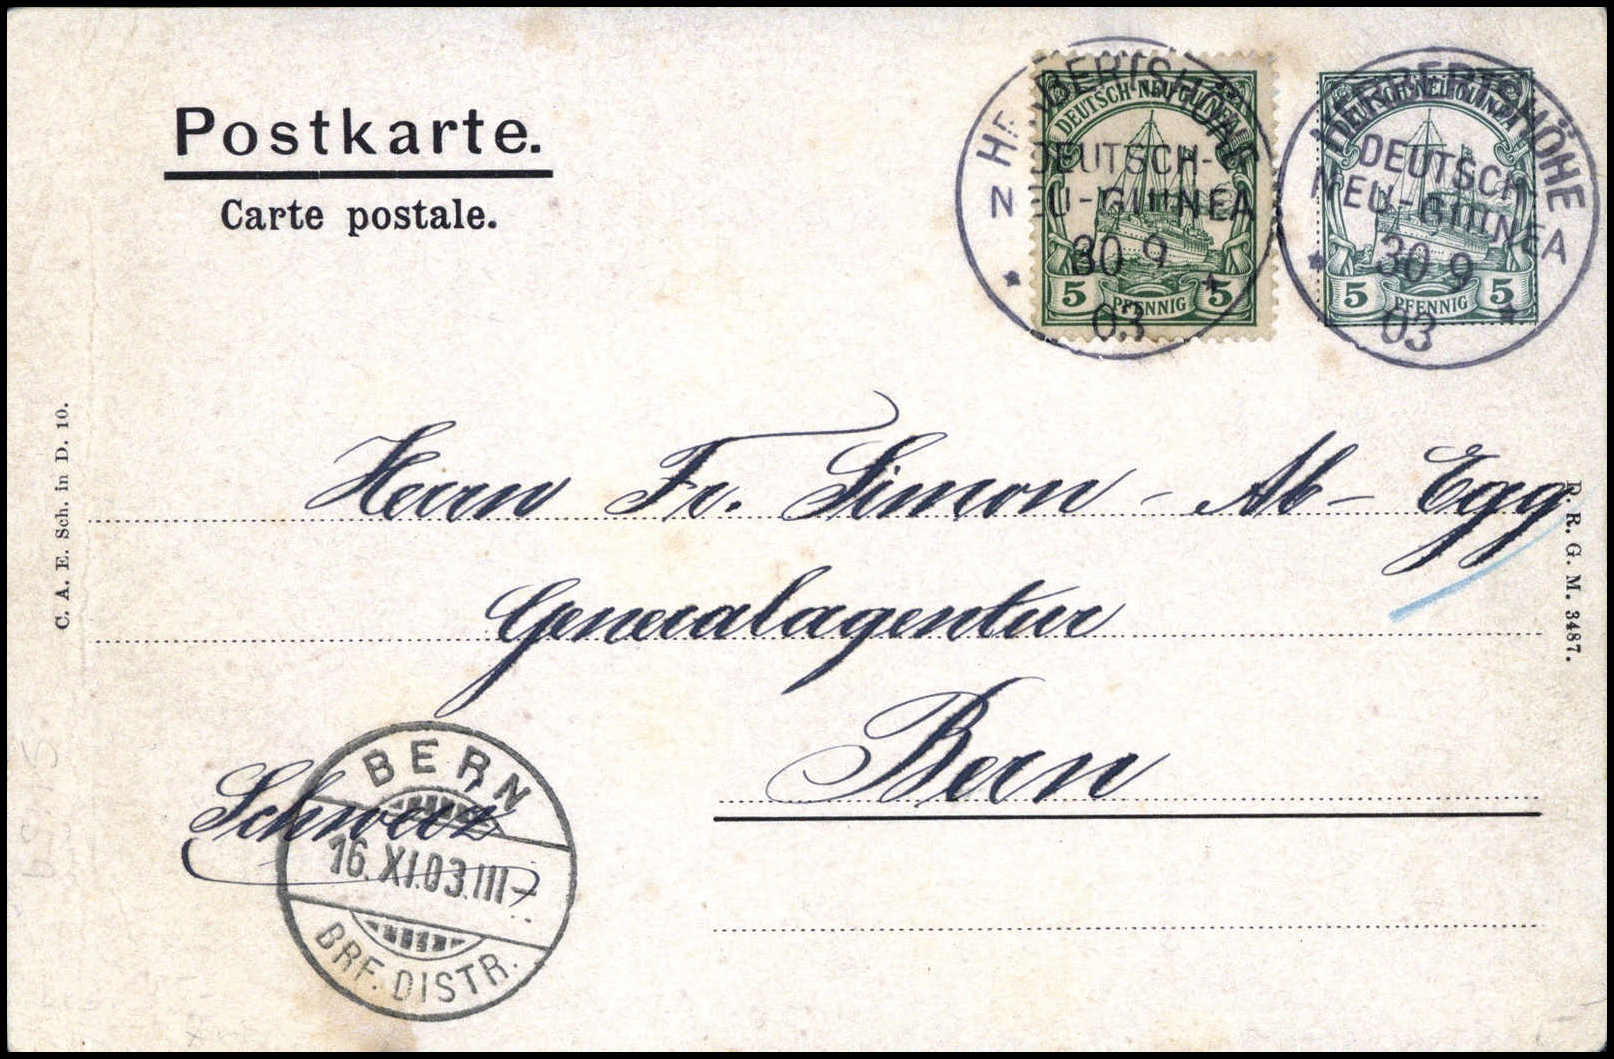 Postkarte.
Carte postale.
HERBERTSHÖHE
DEUTSCH-
NEU-GUINEA
30 9
03
DEUTSCH-NEU-GUINEA
5 PFENNIG 5
HERBERTSHÖHE
DEUTSCH-
NEU-GUINEA
30 9
03
DEUTSCH-NEU-GUINEA
5 PFENNIG 5
C. A. E. Sch. in D. 10.
D. R. G. M. 3487.
Herrn Fr. Simon - Ab - Egg
Generalagentur
Bern
Schweiz
BERN
16.XI.03.III-
BRF. DISTR.